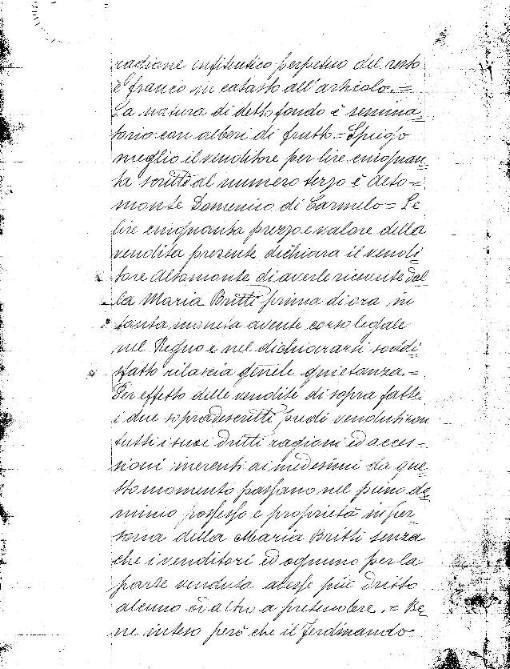 razione enfiteutico perpetuo del resto
è franco in catasto all'articolo. =
La natura di detto fondo è semina=
torio con alberi di frutto. = Spiego
meglio il venditore per lire cinquan=
ta scritti al numero terzo è Alto=
monte Domenico di Carmelo = Le
lire cinquanta prezzo e valore della
vendita presente dichiara il vendi=
tore Altomonte di averle ricevute dal=
la Maria Britti prima di ora in
tanta moneta avente corso legale
nel Regno e nel dichiararsi soddi=
sfatto rilascia quietanza. =
Per effetto delle vendite di sopra fatte
i due sopradescritti fondi venduti con
tutti i suoi dritti ragioni ed acces=
sioni inerenti ai medesimi da que=
sto momento passano nel pieno do=
minio possesso e proprietà in per=
sona della Maria Britti senza
che i venditori ed ognuno per la
parte venduta avesse più dritto
alcuno od altro a pretendere. = Be=
ne inteso però che il Ferdinando